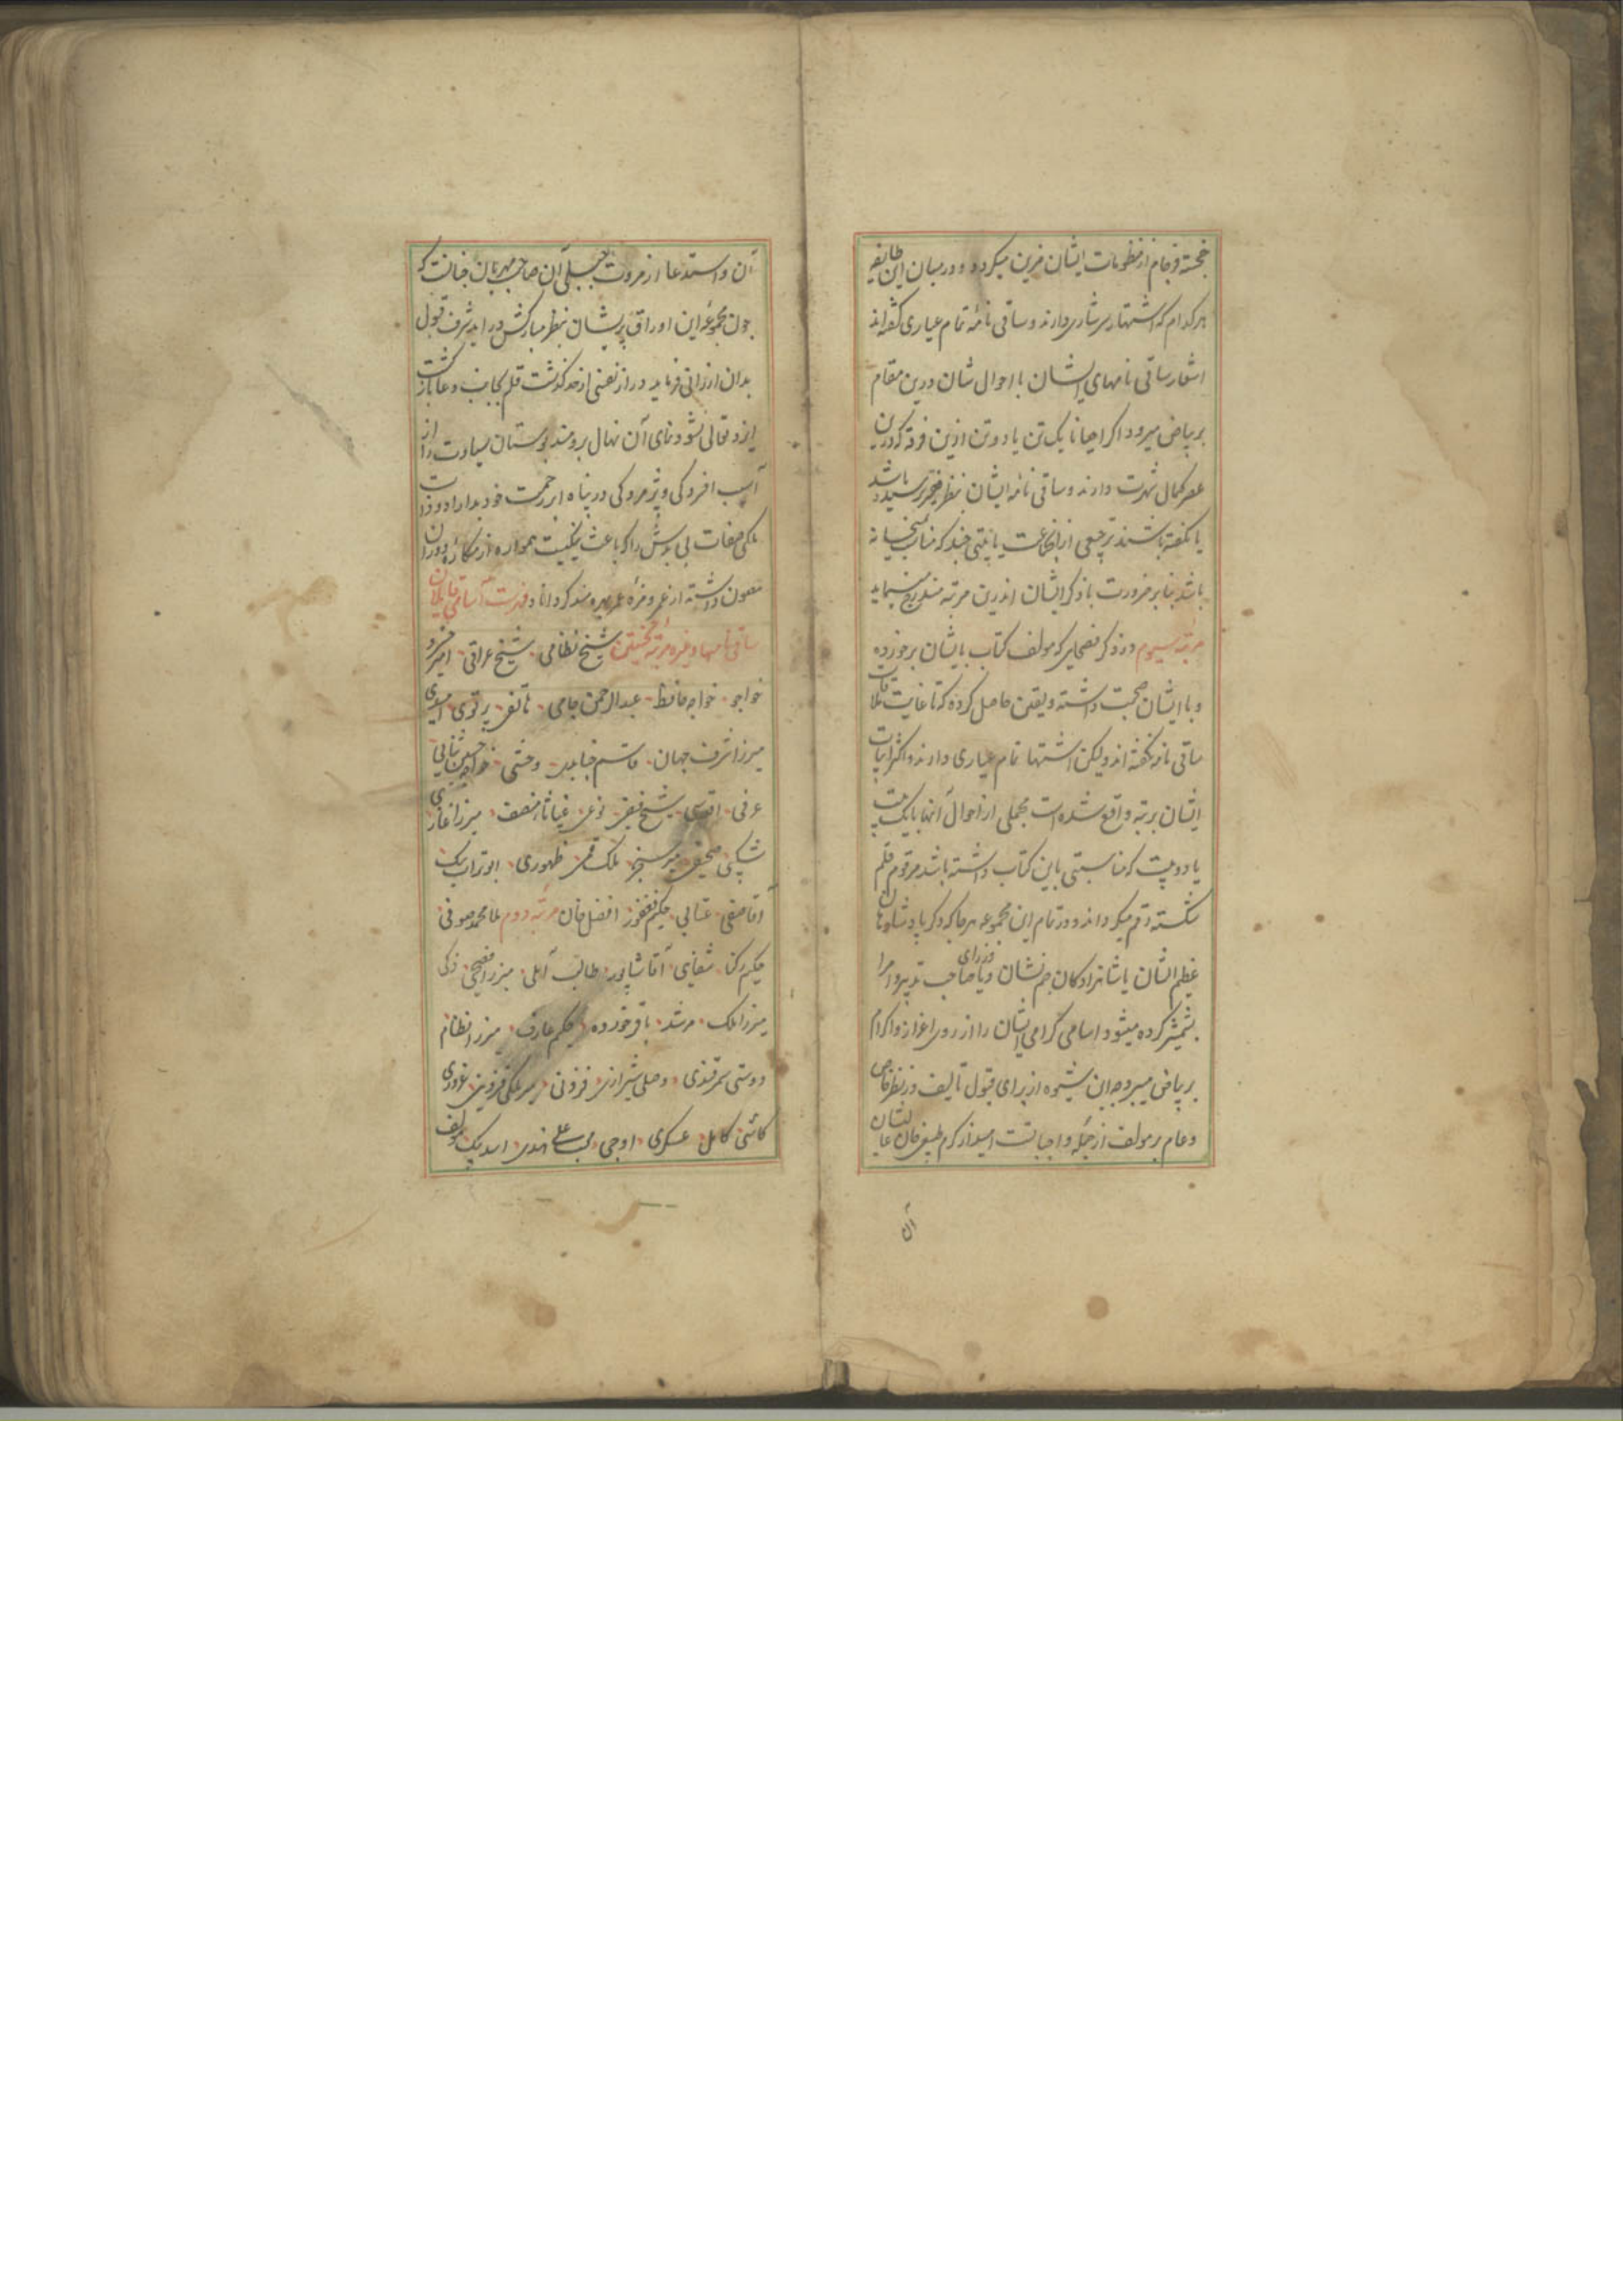 خجسته فرجام از منظومات ایشان مزین میکردد و درمیان این طایفه
هر کدام که اشتهار سرشاری دارند و ساقی نامهٔ تمام عیاری گفته‌اند
اشعار ساقی نامهای ایشان با احوال شان درین مقام
بر بیاض میرود اکر احیانا یک تن یا دو تن ازین فرقه که درین
عصر کمال شهرت دارند و ساقی نامه ایشان بنظر فقیر نرسیده باشد
یا نکفته باشند ترجیعی از آنجماعت یا بیتی چند که مناسب میخانه
باشد بنابر ضرورت با ذکر ایشان اندرین مرتبه مندرج مینماید
مرتبه سیوم در ذکر فضحای که مولف کتاب بایشان برخورده
و با ایشان صحبت داشته و یقین حاصل کرده که تا غایت
ساقی نامه نکفته اند ولیکن اشتهار تمام عیاری دارند و اکثر ابیات
ایشان برتبه واقع شده است مجملی از احوال آنها با یک بیت
یا دو بیت که مناسبتی باین کتاب داشته باشد مرقوم قلم
شکسته رقم میکرداند و در تمام این مجموعه هر جا که ذکر پادشاهان
عظیم الشان یا شاهزادکان جم نشان و یا وزرای صاحب تدبیر و امرا
بشمشیر کرده میشود اسامی کرامی ایشان را از روی اعزاز و اکرام
بر بیاض میبرد چه این شیوه از برای قبول تالیف در نظر خاص
و عام بر مولف از جمله واجباتست امید از کرم
آن
آن و استدعا از مروت جبلی آن صاحب مهربان چنانست که
چون مجموعه این اوراق پریشان بنظر مبارکش در اید شرف قبول
بدان ارزانی فرماید دراز نفسی از حد کذشت قلم بجانب دعا بازکشت
ایزد تعالی نشو و نمای آن نهال برومند بوستان سیادت را از
آسیب افسردکی و پژمردکی در پناه ابر رحمت خود بداراد و ذات
ملکی صفات بی بدلش را که باعث نیکیست همواره از مکاره دوران
مصون داشته از عمر و ثمرهٔ عمر بهره‌مند کرداناد فهرست آسامی قایلان
ساقی نامها و غیره مرتبهٔ نخستین شیخ نظامی شیخ عراقی امیر خسرو
خواجو خواجه حافظ عبدالرحمن جامی هاتفی پرتوی امیدی
میرزا شرف جهان قاسم جنابدی وحشی خواجه حسین ثنایی
عرفی اقدسی شیخ فیضی نوعی غیاثا منصف میرزا غازی
شکیبی صحیفی میر سنجر ملک قمی ظهوری ابوتراب بیک
آقا صفی عتابی حکیم فغفور افضل خان مرتبه دوم ملا محمد صوفی
حکیم رکنا شفایی آقا شاپور طالب آملی میرزا فصیحی زکی
میرزا ملک مرشد باقر خورده حکیم عارف میرزا نظام
دوستی سمرقندی وصلی شیرازی فزونی میر ملکی قزوینی غروری
کاشی کامل عسکری اوجی محب علی سندی اسد بیک مولف